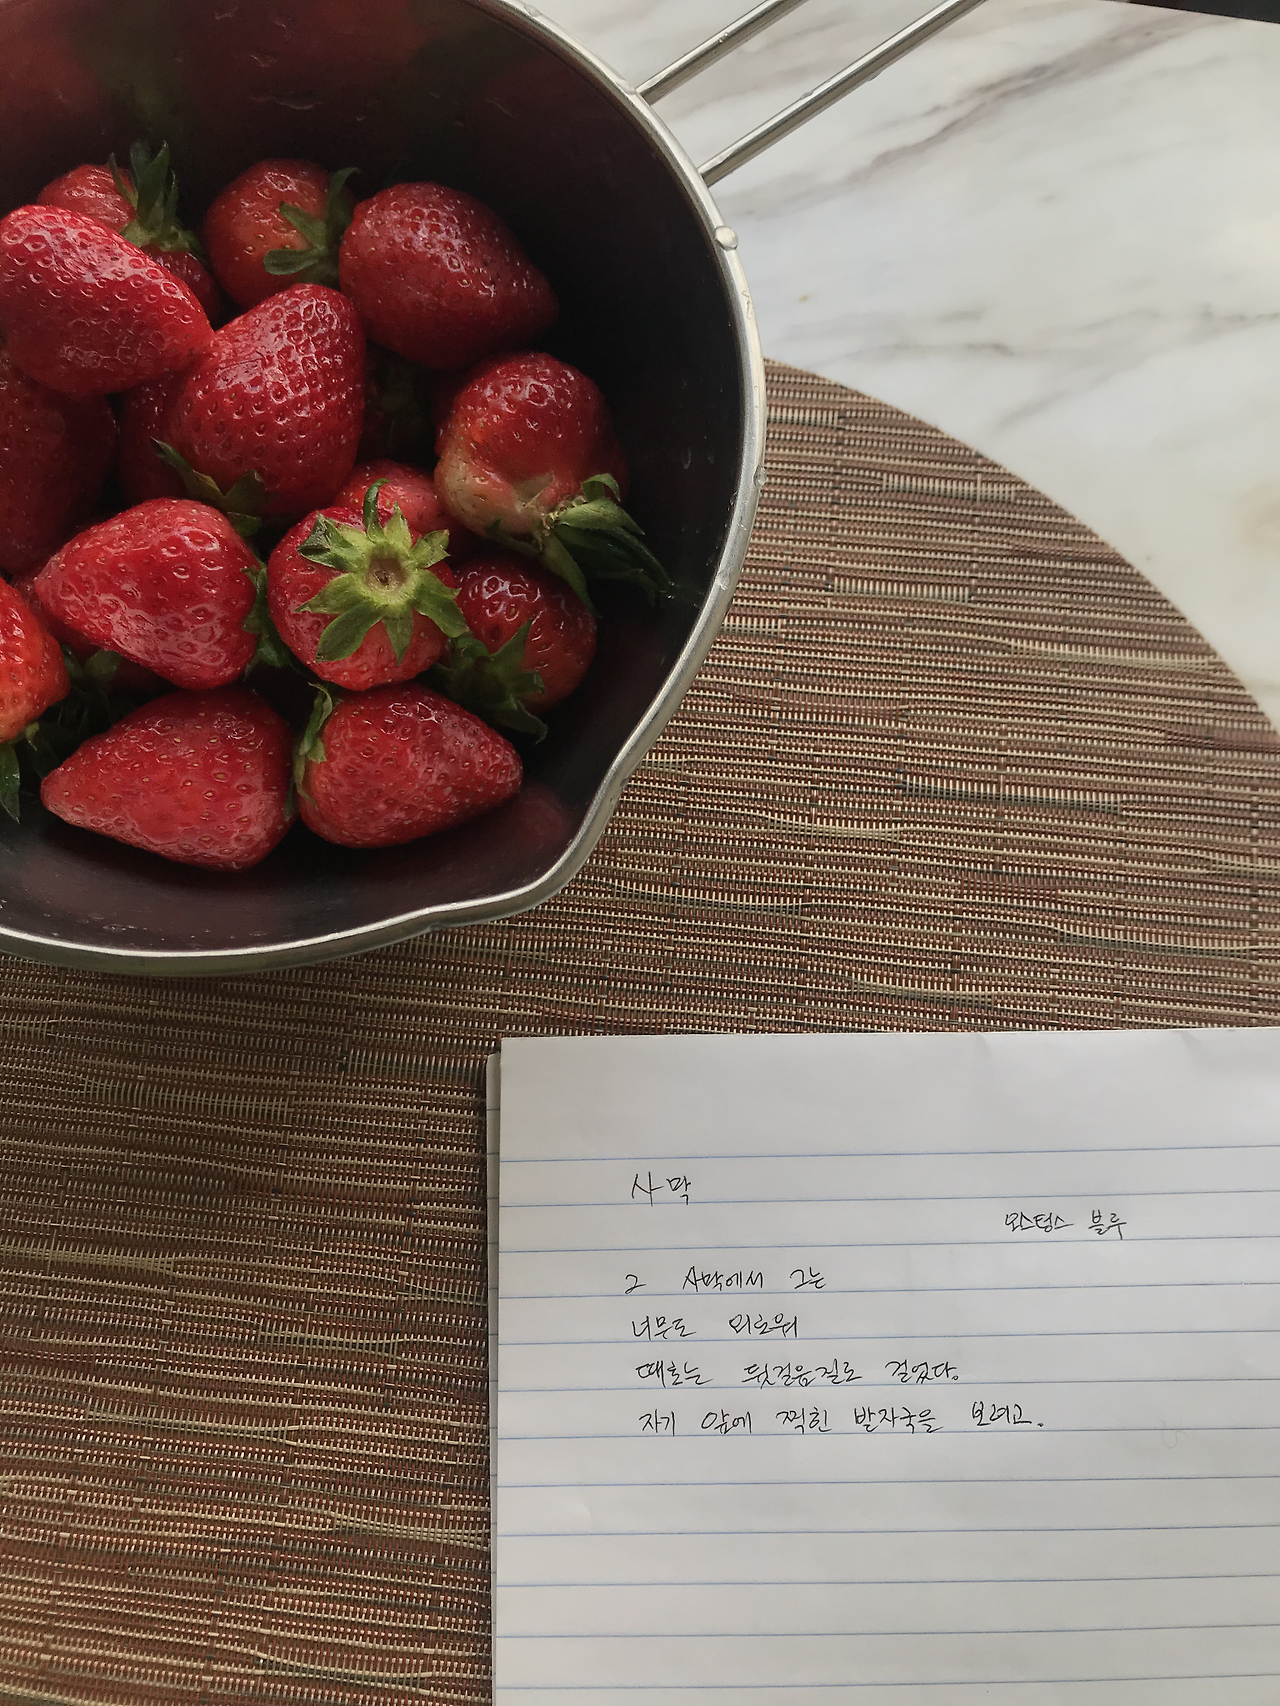 사막
오스텅스 블루
그 사막에서 그는
너무도 외로워
때로는 뒷걸음질로 걸었다.
자기 앞에 찍힌 발자국을 보려고.